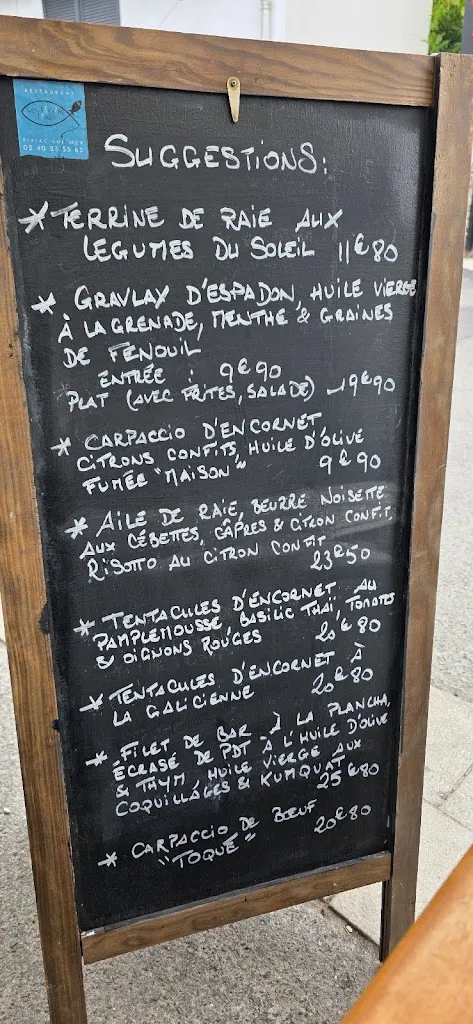 RESTAURANT
PIRIAC SUR MER
02 40 23 53 63
SUGGESTIONS:
* TERRINE DE RAIE AUX
LÉGUMES DU SOLEIL 11€80
* GRAVLAX D'ESPADON, HUILE VIERGE
À LA GRENADE, MENTHE & GRAINES
DE FENOUIL
ENTRÉE : 9€90
PLAT (AVEC FRITES, SALADE) 19€90
* CARPACCIO D'ENCORNET,
CITRONS CONFITS, HUILE D'OLIVE
FUMÉE "MAISON" 9€90
* AILE DE RAIE, BEURRE NOISETTE
AUX CÉBETTES, CÂPRES & CITRON CONFIT,
RISOTTO AU CITRON CONFIT
23€50
* TENTACULES D'ENCORNET AU
PAMPLEMOUSSE, BASILIC THAÏ, TOMATES
& OIGNONS ROUGES 20€80
* TENTACULES D'ENCORNET À
LA GALICIENNE 20€80
* FILET DE BAR À LA PLANCHA,
ÉCRASÉ DE PDT À L'HUILE D'OLIVE
& THYM, HUILE VIERGE AUX
COQUILLAGES & KUMQUAT
25€80
* CARPACCIO DE BŒUF 20€80
"TOQUÉ"